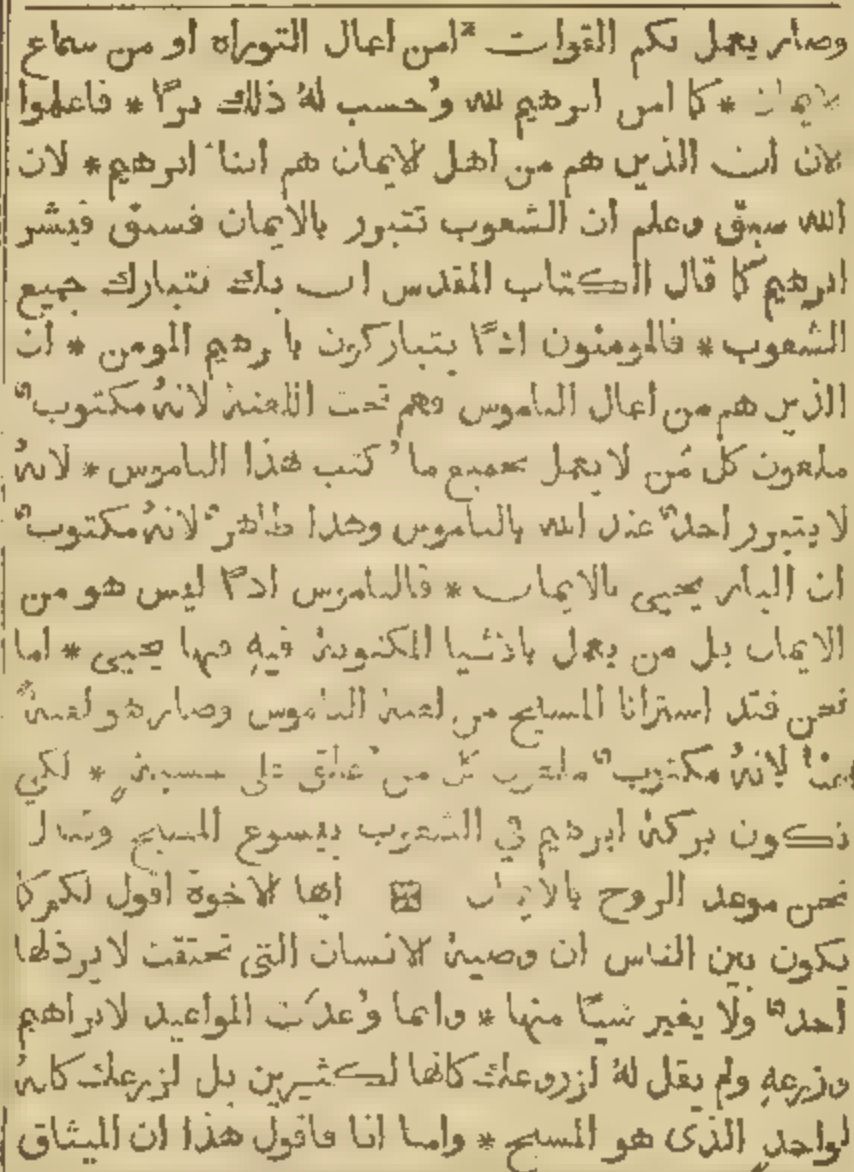 وصار يعمل بكم القوات * امن اعمال التوراه او من سماع
الايمان * كما امن ابرهيم لله وحسب لهُ ذلك برًّا * فاعلموا
الان ان الذين هم من اهل الايمان هم ابنا ابرهيم * لان
الله سبق وعلم ان الشعوب تتبرر بالايمان فسبق فبشر
ابرهيم كما قال الكتاب المقدس ان بك تتبارك جميع
الشعوب * فالمومنون اذًا يتباركون بابرهيم المومن * ان
الذين هم من اعمال الناموس فهم تحت اللعنة لانهُ مكتوبٌ
ملعون كل مَن لا يعمل بجميع ما كُتب هذا الناموس * لانهُ
لا يتبرر احدٌ عند الله بالناموس وهذا ظاهرٌ لانهُ مكتوبٌ
ان البار يحيى بالايمان * فالناموس اذًا ليس هو من
الايمان بل من يعمل بالاشيا المكتوبة فيهِ فبها يحيى * اما
نحن فقد اشترانا المسيح من لعنة الناموس وصار هو لعنةً
لانهُ مكتوبٌ ملعون كل من عُلق على خشبةٍ * لكي
تكون بركة ابرهيم في الشعوب بيسوع المسيح وننال
نحن موعد الروح بالايمان ايها الاخوة اقول لكم كما
يكون بين الناس ان وصية الانسان التي تحققت لا يرذلها
احدٌ ولا يغير شيًا منها * وانما وُعدَت المواعيد لابراهيم
وزرعهِ ولم يقل لهُ لزروعك كانها لكثيرين بل لزرعك كانهُ
لواحدٍ الذى هو المسيح * واما انا فاقول هذا ان الميثاق